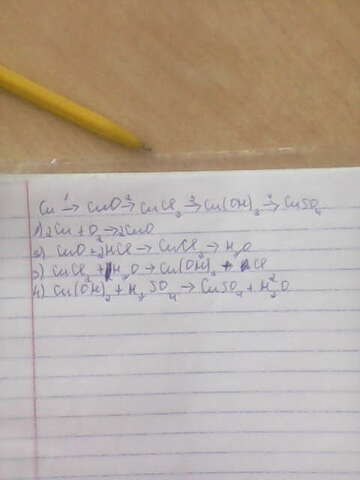 Cu →¹ CuO →² CuCl₂ →³ Cu(OH)₂ →⁴ CuSO₄
1) 2Cu + O₂ → 2CuO
2) CuO + 2HCl → CuCl₂ → H₂O
3) CuCl₂ + H₂O → Cu(OH)₂ + Cl
4) Cu(OH)₂ + H₂SO₄ → CuSO₄ + H₂O